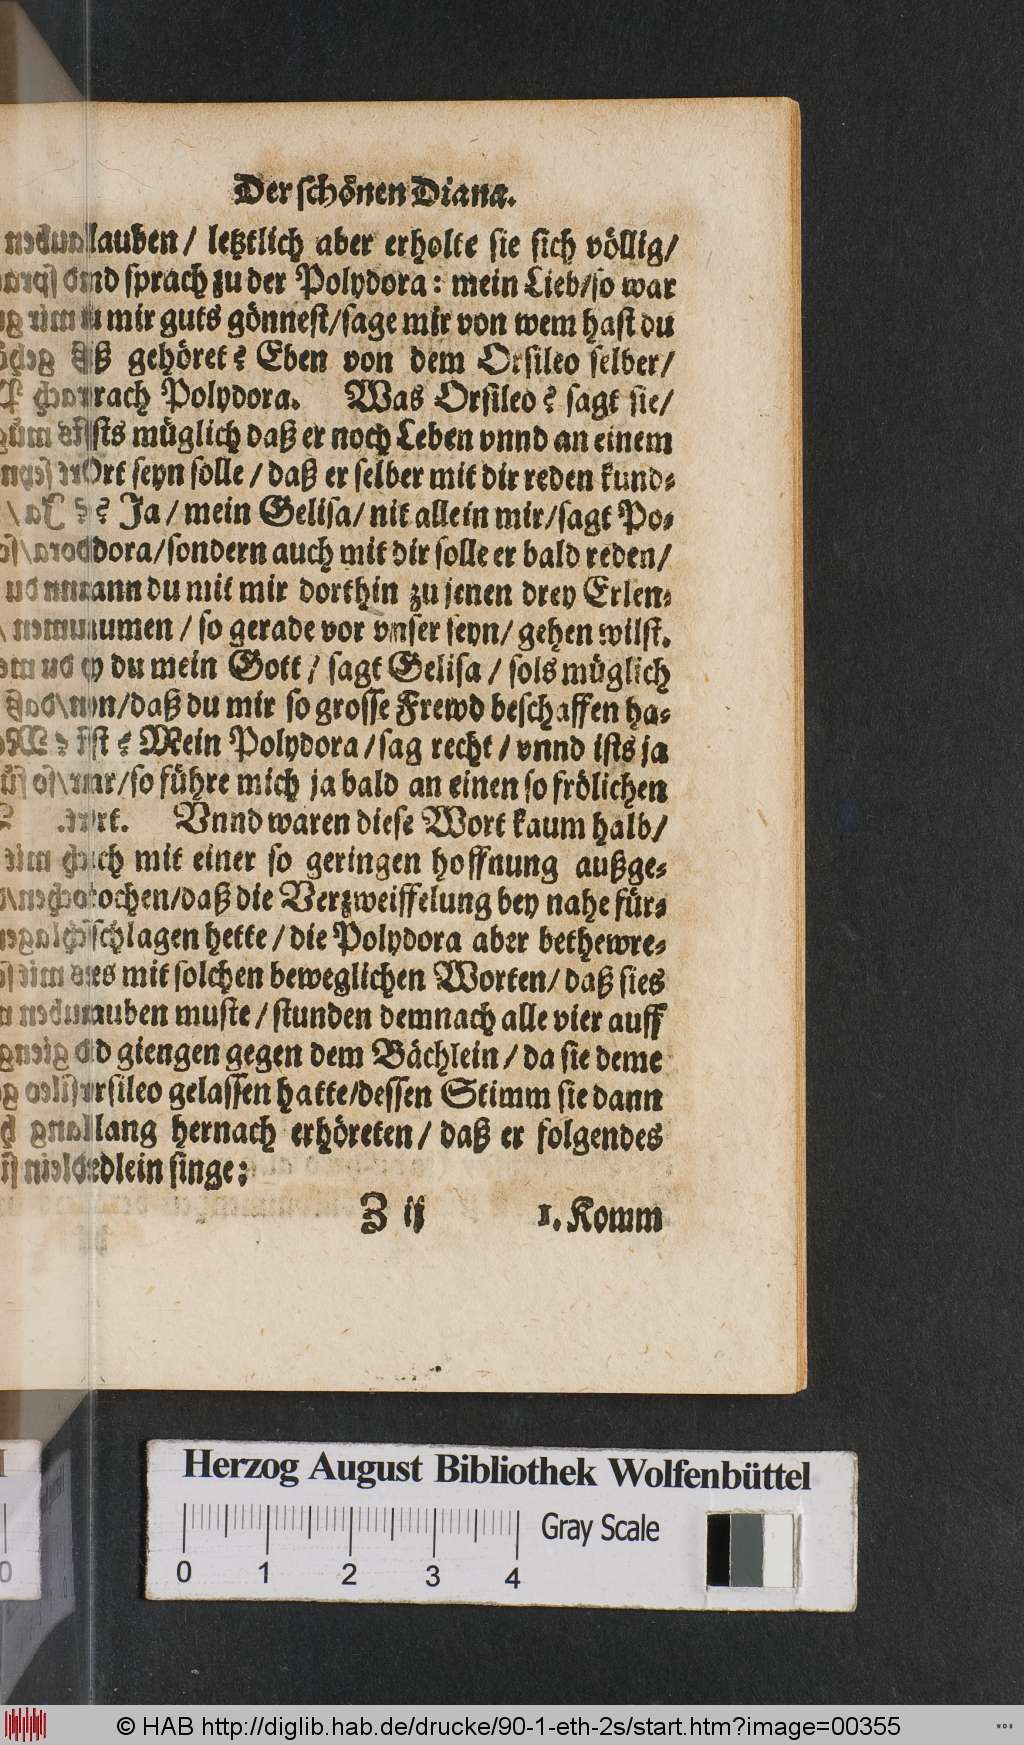 Der schönen Diana.
lauben / letztlich aber erholte sie sich völlig /
vnd sprach zu der Polydora : mein Lieb / so war
mir guts gönnest / sage mir von wem hast du
gehöret ? Eben von dem Orsileo selber /
sprach Polydora. Was Orsileo ? sagt sie /
ists müglich daß er noch Leben vnnd an einem
Ort seyn solle / daß er selber mit dir reden kund-
? Ja / mein Gelisa / nit allein mir / sagt Po-
dora / sondern auch mit dir solle er bald reden /
wann du mit mir dorthin zu jenen drey Erlen-
umen / so gerade vor vnser seyn / gehen wilst.
du mein Gott / sagt Gelisa / sols müglich
/ daß du mir so grosse Frewd beschaffen ha-
st ? Mein Polydora / sag recht / vnnd ists ja
/ so führe mich ja bald an einen so frölichen
Ort. Vnnd waren diese Wort kaum halb /
mit einer so geringen hoffnung außge-
ochen / daß die Verzweiffelung bey nahe für-
schlagen hette / die Polydora aber bethewre-
es mit solchen beweglichen Worten / daß sies
auben muste / stunden demnach alle vier auff
giengen gegen dem Bächlein / da sie deme
Orsileo gelassen hatte / dessen Stimm sie dann
lang hernach erhöreten / daß er folgendes
dlein singe :
Z ij 1. Komm
Herzog August Bibliothek Wolfenbüttel
0 1 2 3 4 Gray Scale
© HAB http://diglib.hab.de/drucke/90-1-eth-2s/start.htm?image=00355